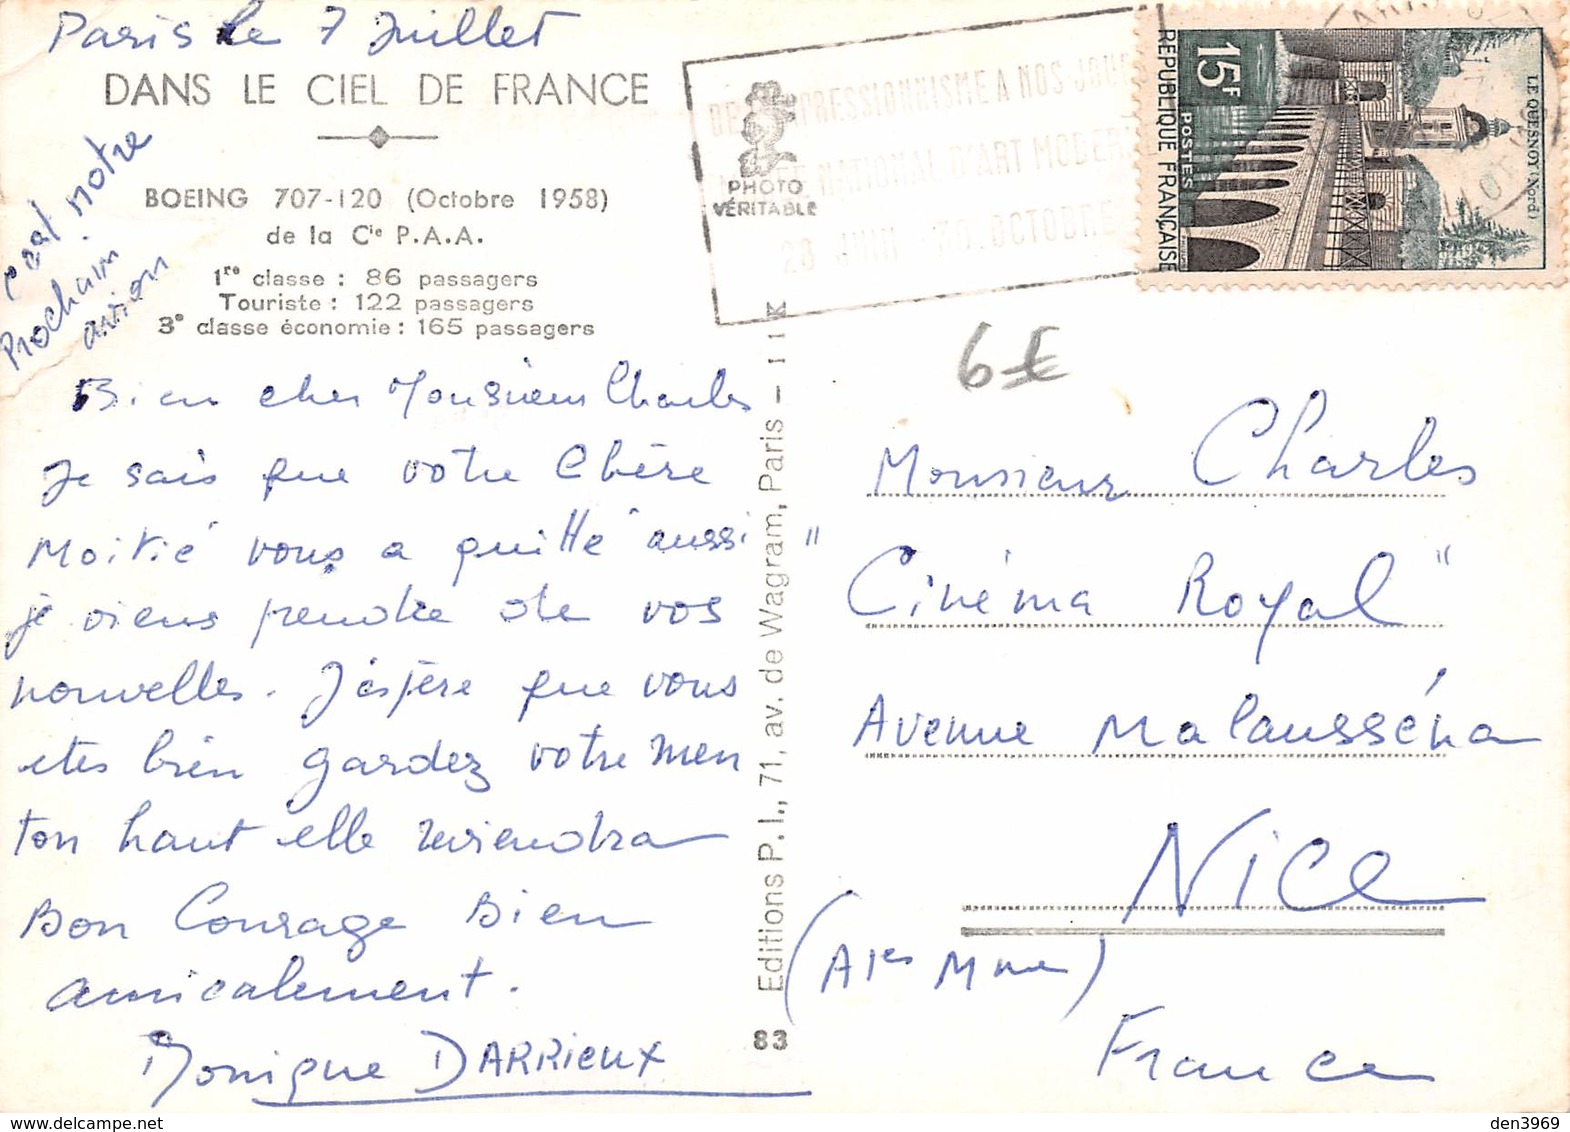 Paris le 7 Juillet
DANS LE CIEL DE FRANCE
BOEING 707-120 (Octobre 1958)
de la Cie P.A.A.
1re classe : 86 passagers
Touriste : 122 passagers
3e classe économie : 165 passagers
c'est notre
Prochain
avion
Bien cher Monsieur Charles
Je sais que votre Chère
Moitié vous a quitté aussi
je viens prendre de vos
nouvelles. J'éspère que vous
etes bien gardez votre men
ton haut elle reviendra
Bon Courage Bien
amicalement.
Monique DARRIEUX
PHOTO
VÉRITABLE
Editions P. I., 71, av. de Wagram, Paris - 11 K
83
DE L'IMPRESSIONNISME A NOS JOURS
MUSÉE NATIONAL D'ART MODERNE
28 JUIN - 30 OCTOBRE
15F
POSTES
REPUBLIQUE FRANÇAISE
LE QUESNOY (Nord)
6€
Monsieur Charles
"Cinéma Royal"
Avenue Malausséna
Nice
(Alpes Mmes)
France
den3969